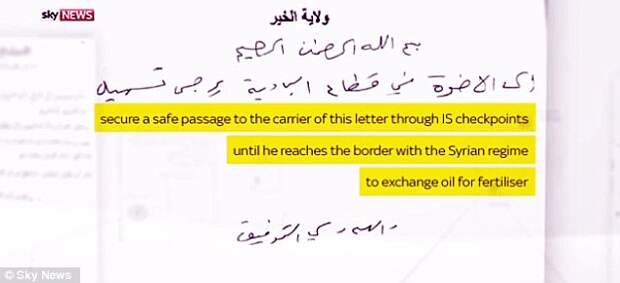 sky NEWS
ولاية الخير
بسم الله الرحمن الرحيم
إلى الاخوة في قطاع البادية يرجى تسهيل
secure a safe passage to the carrier of this letter through IS checkpoints
until he reaches the border with the Syrian regime
to exchange oil for fertiliser
والله ولي التوفيق
© Sky News